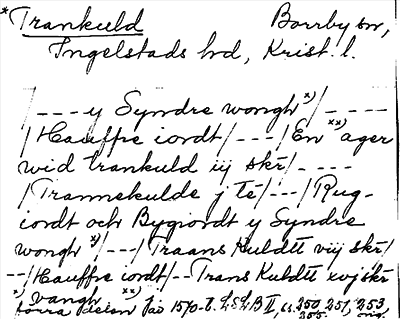 *Trankuld Borrby sn,
Ingelstads hd, Krist. l.
/---y Syndre wongh x)/-----
/Hauffre iordt/---/En xx) ager
wid trankuld iij skr/----
/Trannekulde j te/---/Rug-
iordt och Bygiordt y Syndre
wongh x)/---/Traans Kuldtt viij skr/
--/Hauffre iordt/--Trans Kuldtt xvj skr
x) vangh xx)
förra delen Jao 1570-t. LSLB II, s. 250, 251, 253,
255.